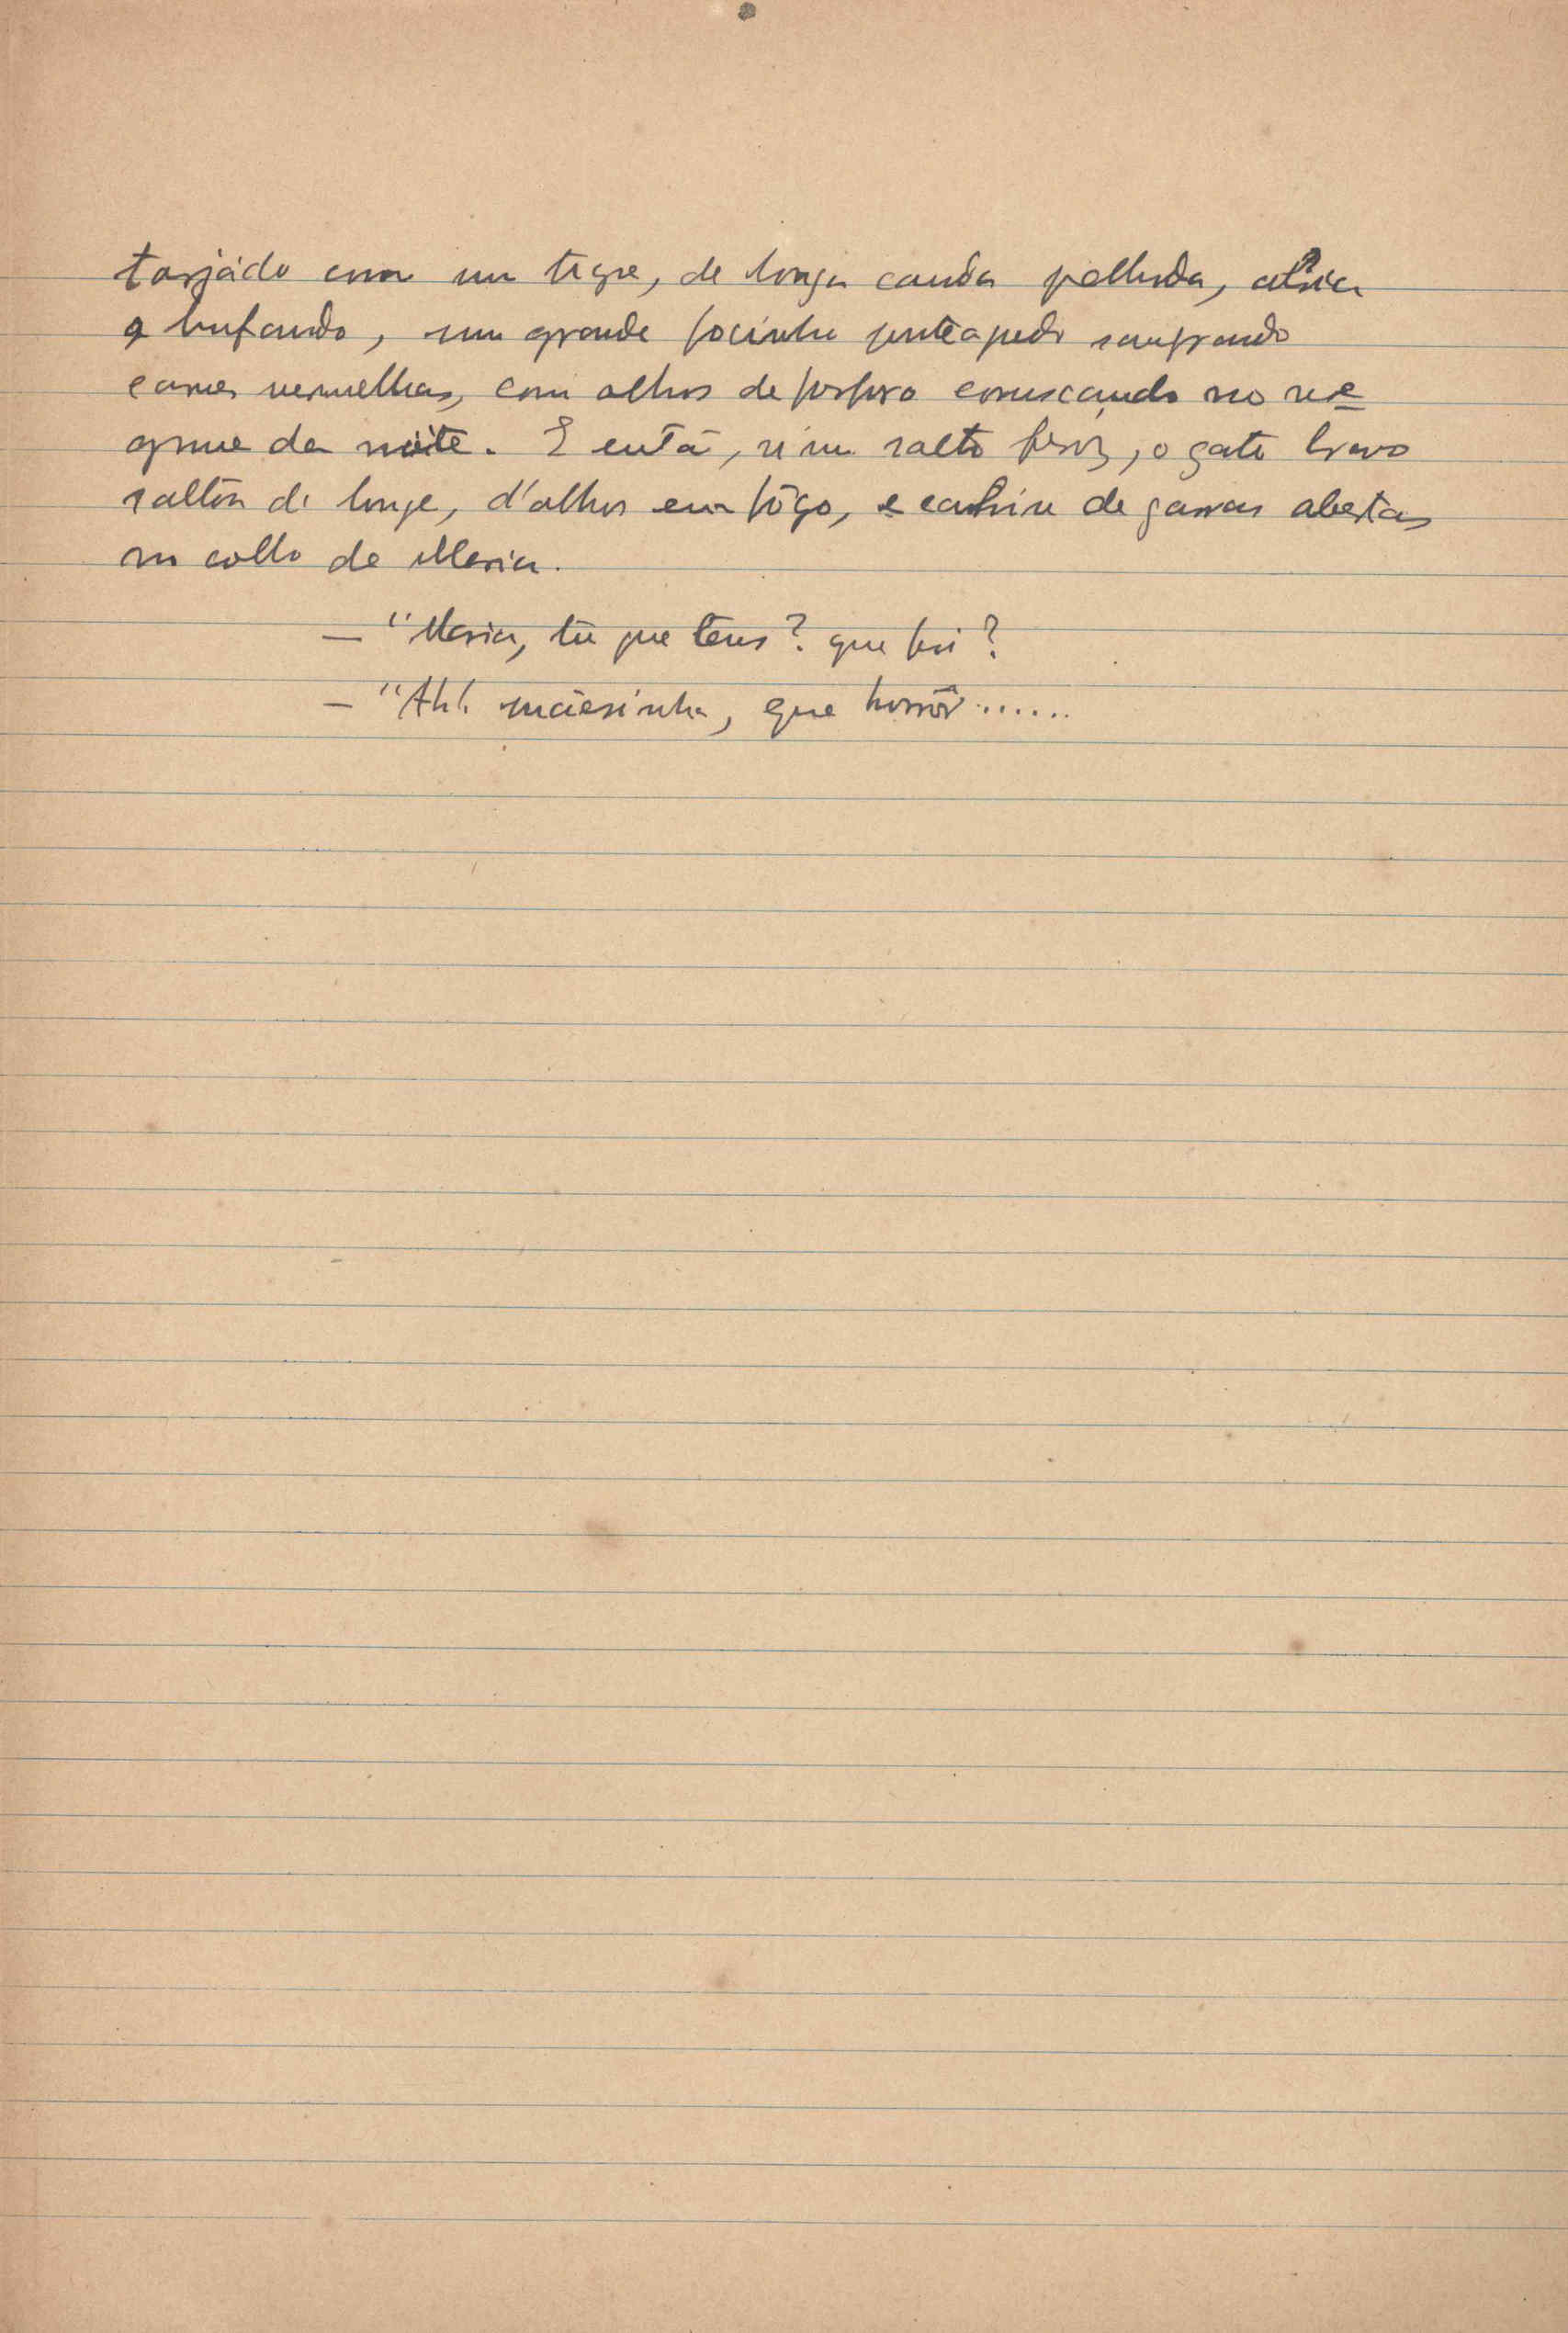 tarjádo com um tigre, de longa cauda pelluda, abria
bufando, um grande focinho ponteagudo sangrando
carnes vermelhas, com olhos de fosforo coruscando no ne
grume da noite. E entã, n'um salto feroz, o gato bravo
saltou de longe, d'olhos em fôgo, e cahiu de garras abertas
no collo de Maria.
— "Maria, tu que tens? que foi?
— "Ah! mãesinha, que horrôr......